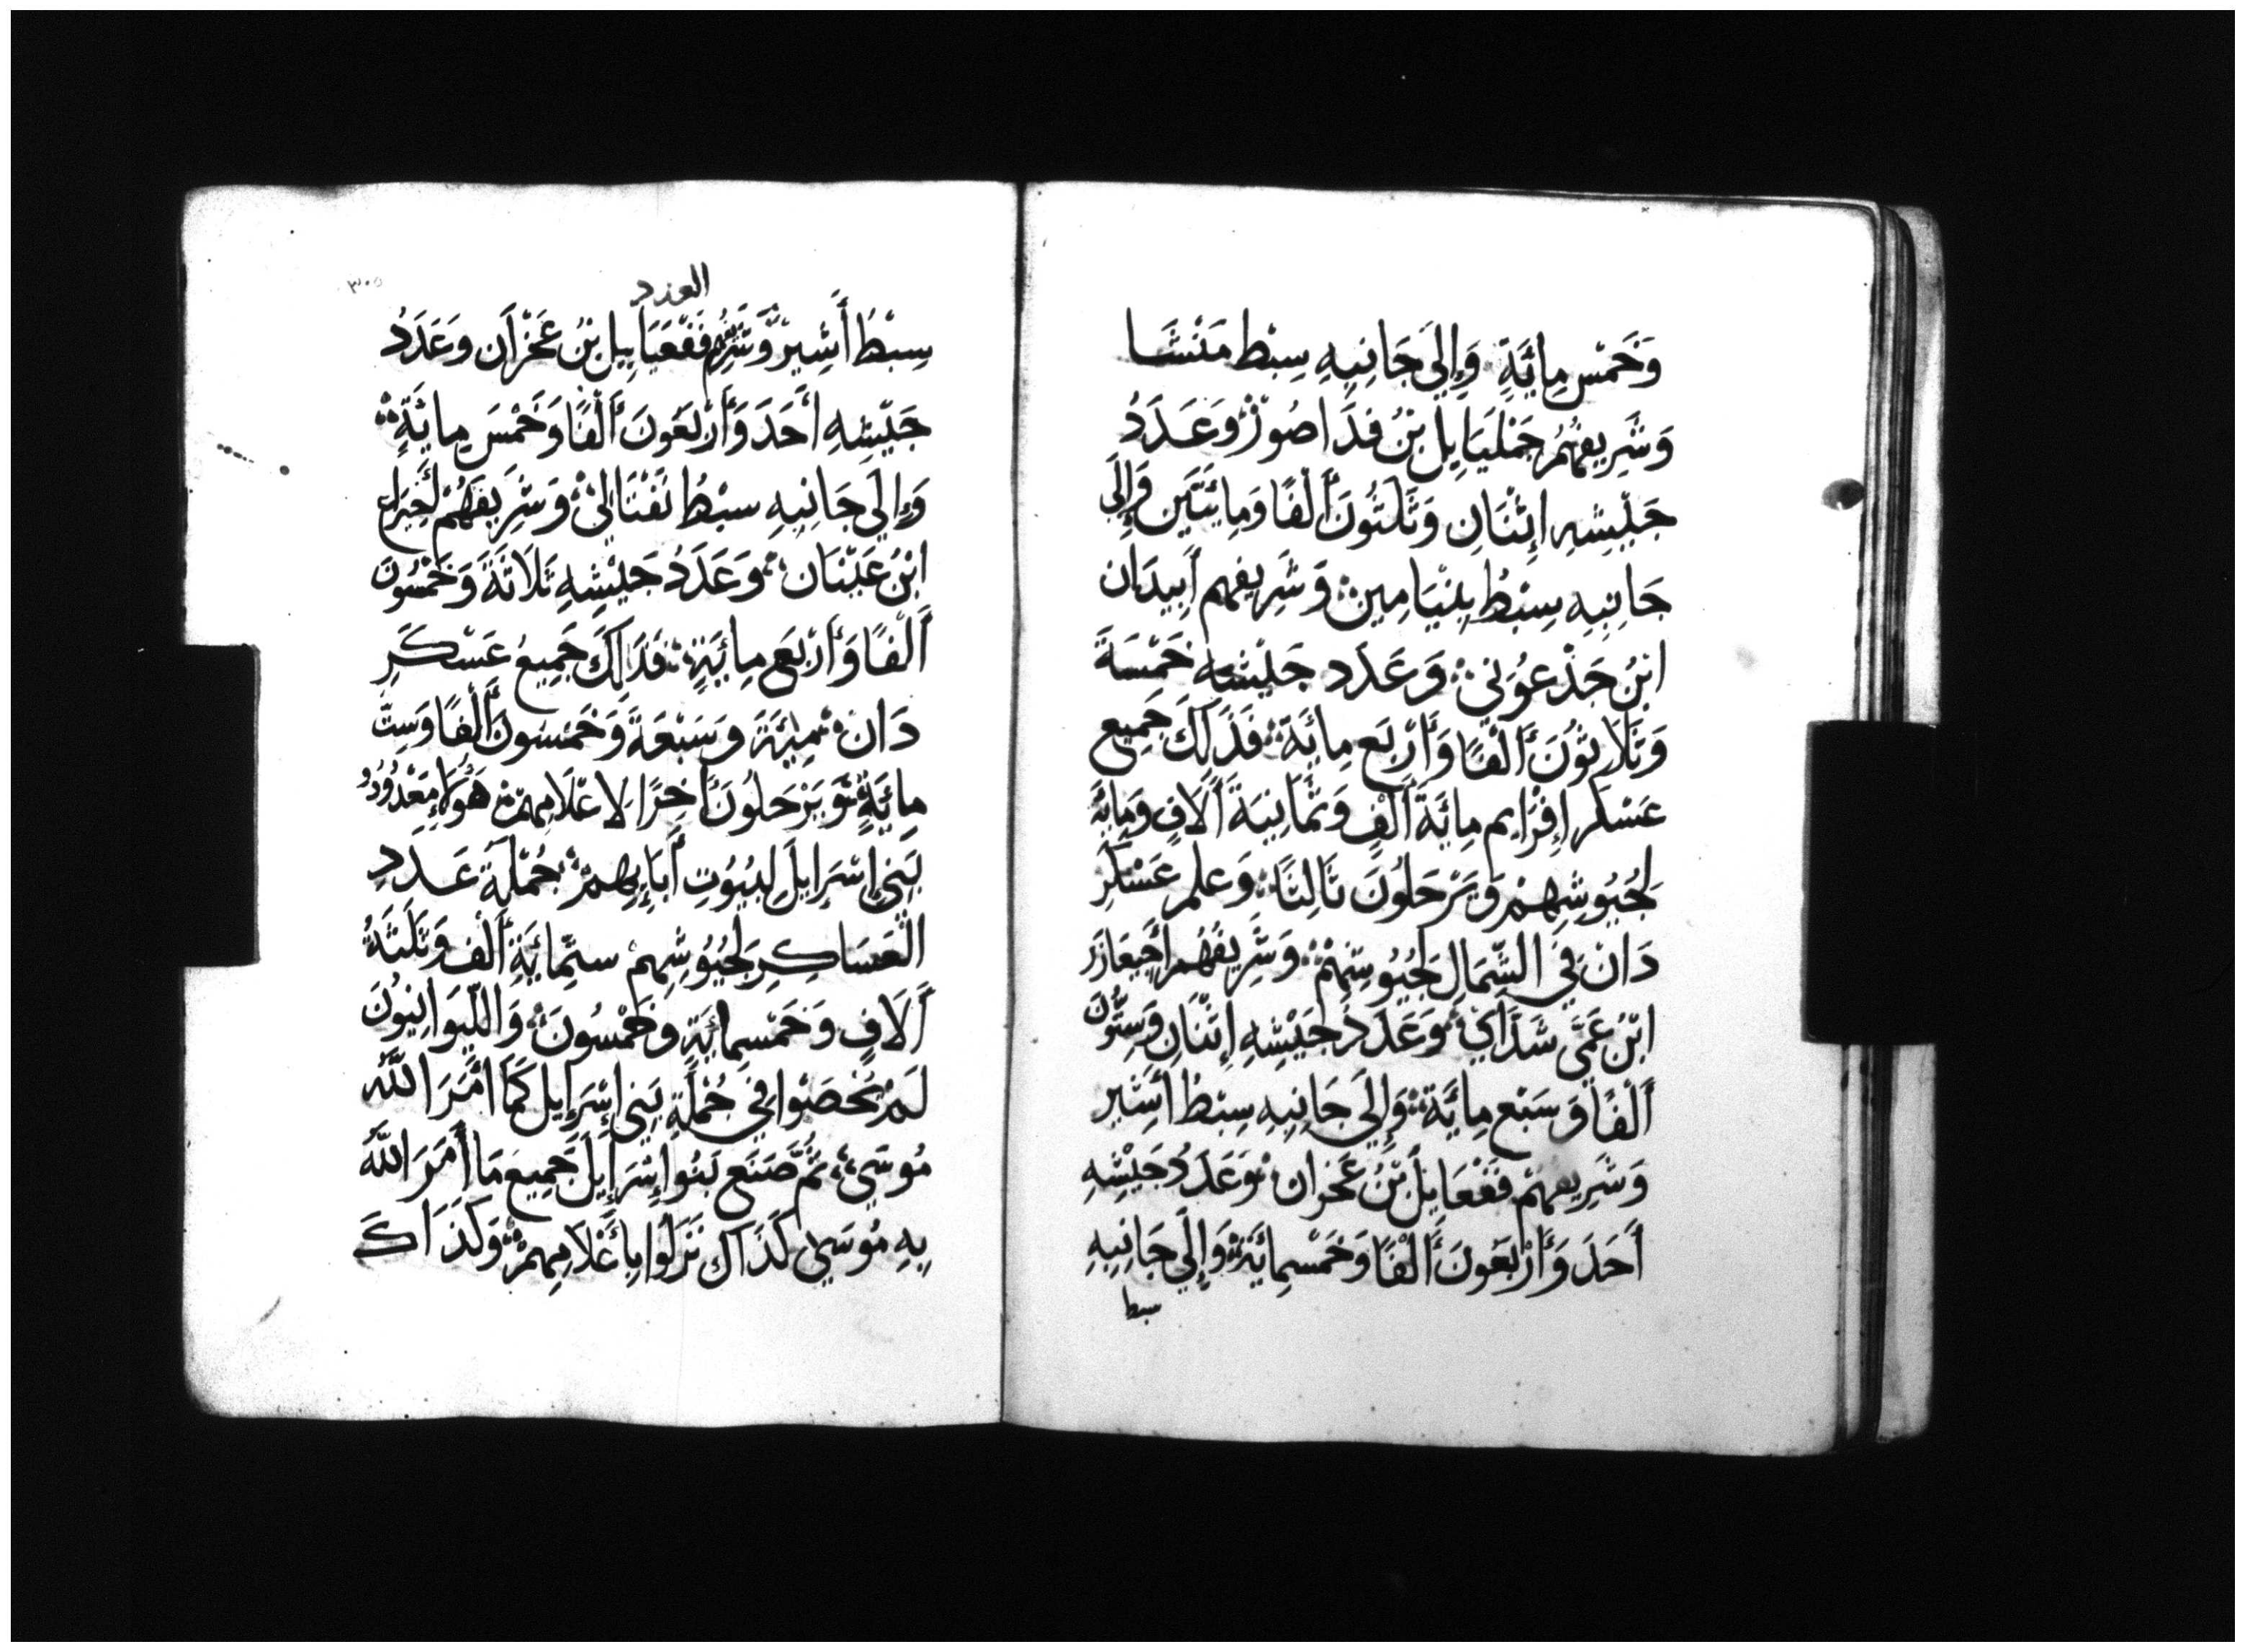 وَخَمْس مِائَةٍ وَإِلَي جَانِبِهِ سِبْط مَنْشَا
وَشَرِيفهُمُ جَمْلَيَايِل بْنُ فِدَاصُوْر وَعَدَدُ
جَيْشِهِ اِثْنَانِ وَثَلَثُونَ أَلْفًا وَمِائَتَين وَإِلَي
جَانِبِهِ سِبْطُ بِنْيَامِين وَشَرِيفهم أَبِيدَان
ابْنُ جَذْعُوني وَعَدَد جَيْشهِ خَمْسَةَ
وَثَلَاثُونَ أَلْفًا وَأَرْبَع مِائَة فَذَلِكَ جَمِيع
عَسْكَر إِفْرَايم مِائَةَ أَلْفٍ وَثَمَانِيَةَ أَلَافٍ وَمِائَة
لِجُيُوشِهِمْ وَيَرْحَلُونَ ثَالِثًا وَعلم عَسْكَرِ
دَانْ فِي الشِّمَالِ لِجُيُوشِهِمْ وَشَرِيفَهُم أَخِيعَازَر
ابْنُ عَمَّى شَدَاي وَعَدَدُ جَيْشِهِ إِثْنَانِ وَسِتُّونَ
أَلْفًا وَسَبْع مِائَة وَإِلَي جَانِبِهِ سِبْطُ أَشِير
وَشَرِيفهمْ فَعْعَايِل بْنُ عَخران وَعَدَدُ جَيْشِهِ
أَحَدَ وَأَرْبَعُونَ أَلْفًا وَخَمْسمِائَة وَإِلَي جَانِبِهِ
سبط
العدد
٣٠٥
سِبْطُ أَشِيرْ وَشَرِيفُهم فَعْعَيَايِيل بْنُ عَخْرَان وَعَدَدُ
جَيْشِهِ أَحَدَ وَأَرْبَعُونَ أَلْفًا وَخَمْسَ مِائَةٍ
وَإِلَي جَانِبِهِ سبْطُ نَفْتَالِي وَشَرِيفَهُمْ أَخِيرَاع
ابْنُ عَيْنَان وَعَدَدُ جَيْشِهِ ثَلَاثَةَ وَخَمْسُونَ
أَلْفًا وَأَرْبَع مِائَةٍ فَذَالِكَ جَمِيعُ عَسْكَرِ
دَانْ مِئَة وَسَبْعَةَ وَخَمْسُونَ أَلْفًا وَسِتّ
مِائَةٍ وَيَرْحَلُونَ أَخِرًا لِاعْلَامِهمْ هَؤُلَاءِ مَعْدُودُو
بَنِي إِسْرَايِلَ لِبُيُوتِ أَبَايِهِمْ جُمْلَة عَدَدِ
الْعَسَاكِرِ لِجُيُوشِهِمْ ستّمِائَةِ أَلْف وَثَلَثَةُ
أَلَافٍ وَخَمْسمِائَةٍ وَخَمْسُونَ وَاللِّيوَانِيُونَ
لَمْ يُحْصَوْا فِي جُمْلَةِ بَنِي إِسْرَايِل كَمَا أَمَرَ اللَّهُ
مُوسَي ثُمَّ صَنَعَ بَنُوا إِسْرَايِلَ جَمِيعَ مَا أَمَرَ اللَّهُ
بِهِ مُوسَي كَذَاك نَزَلُوا بِأَعْلَامِهِمْ وَكَذَاكَ